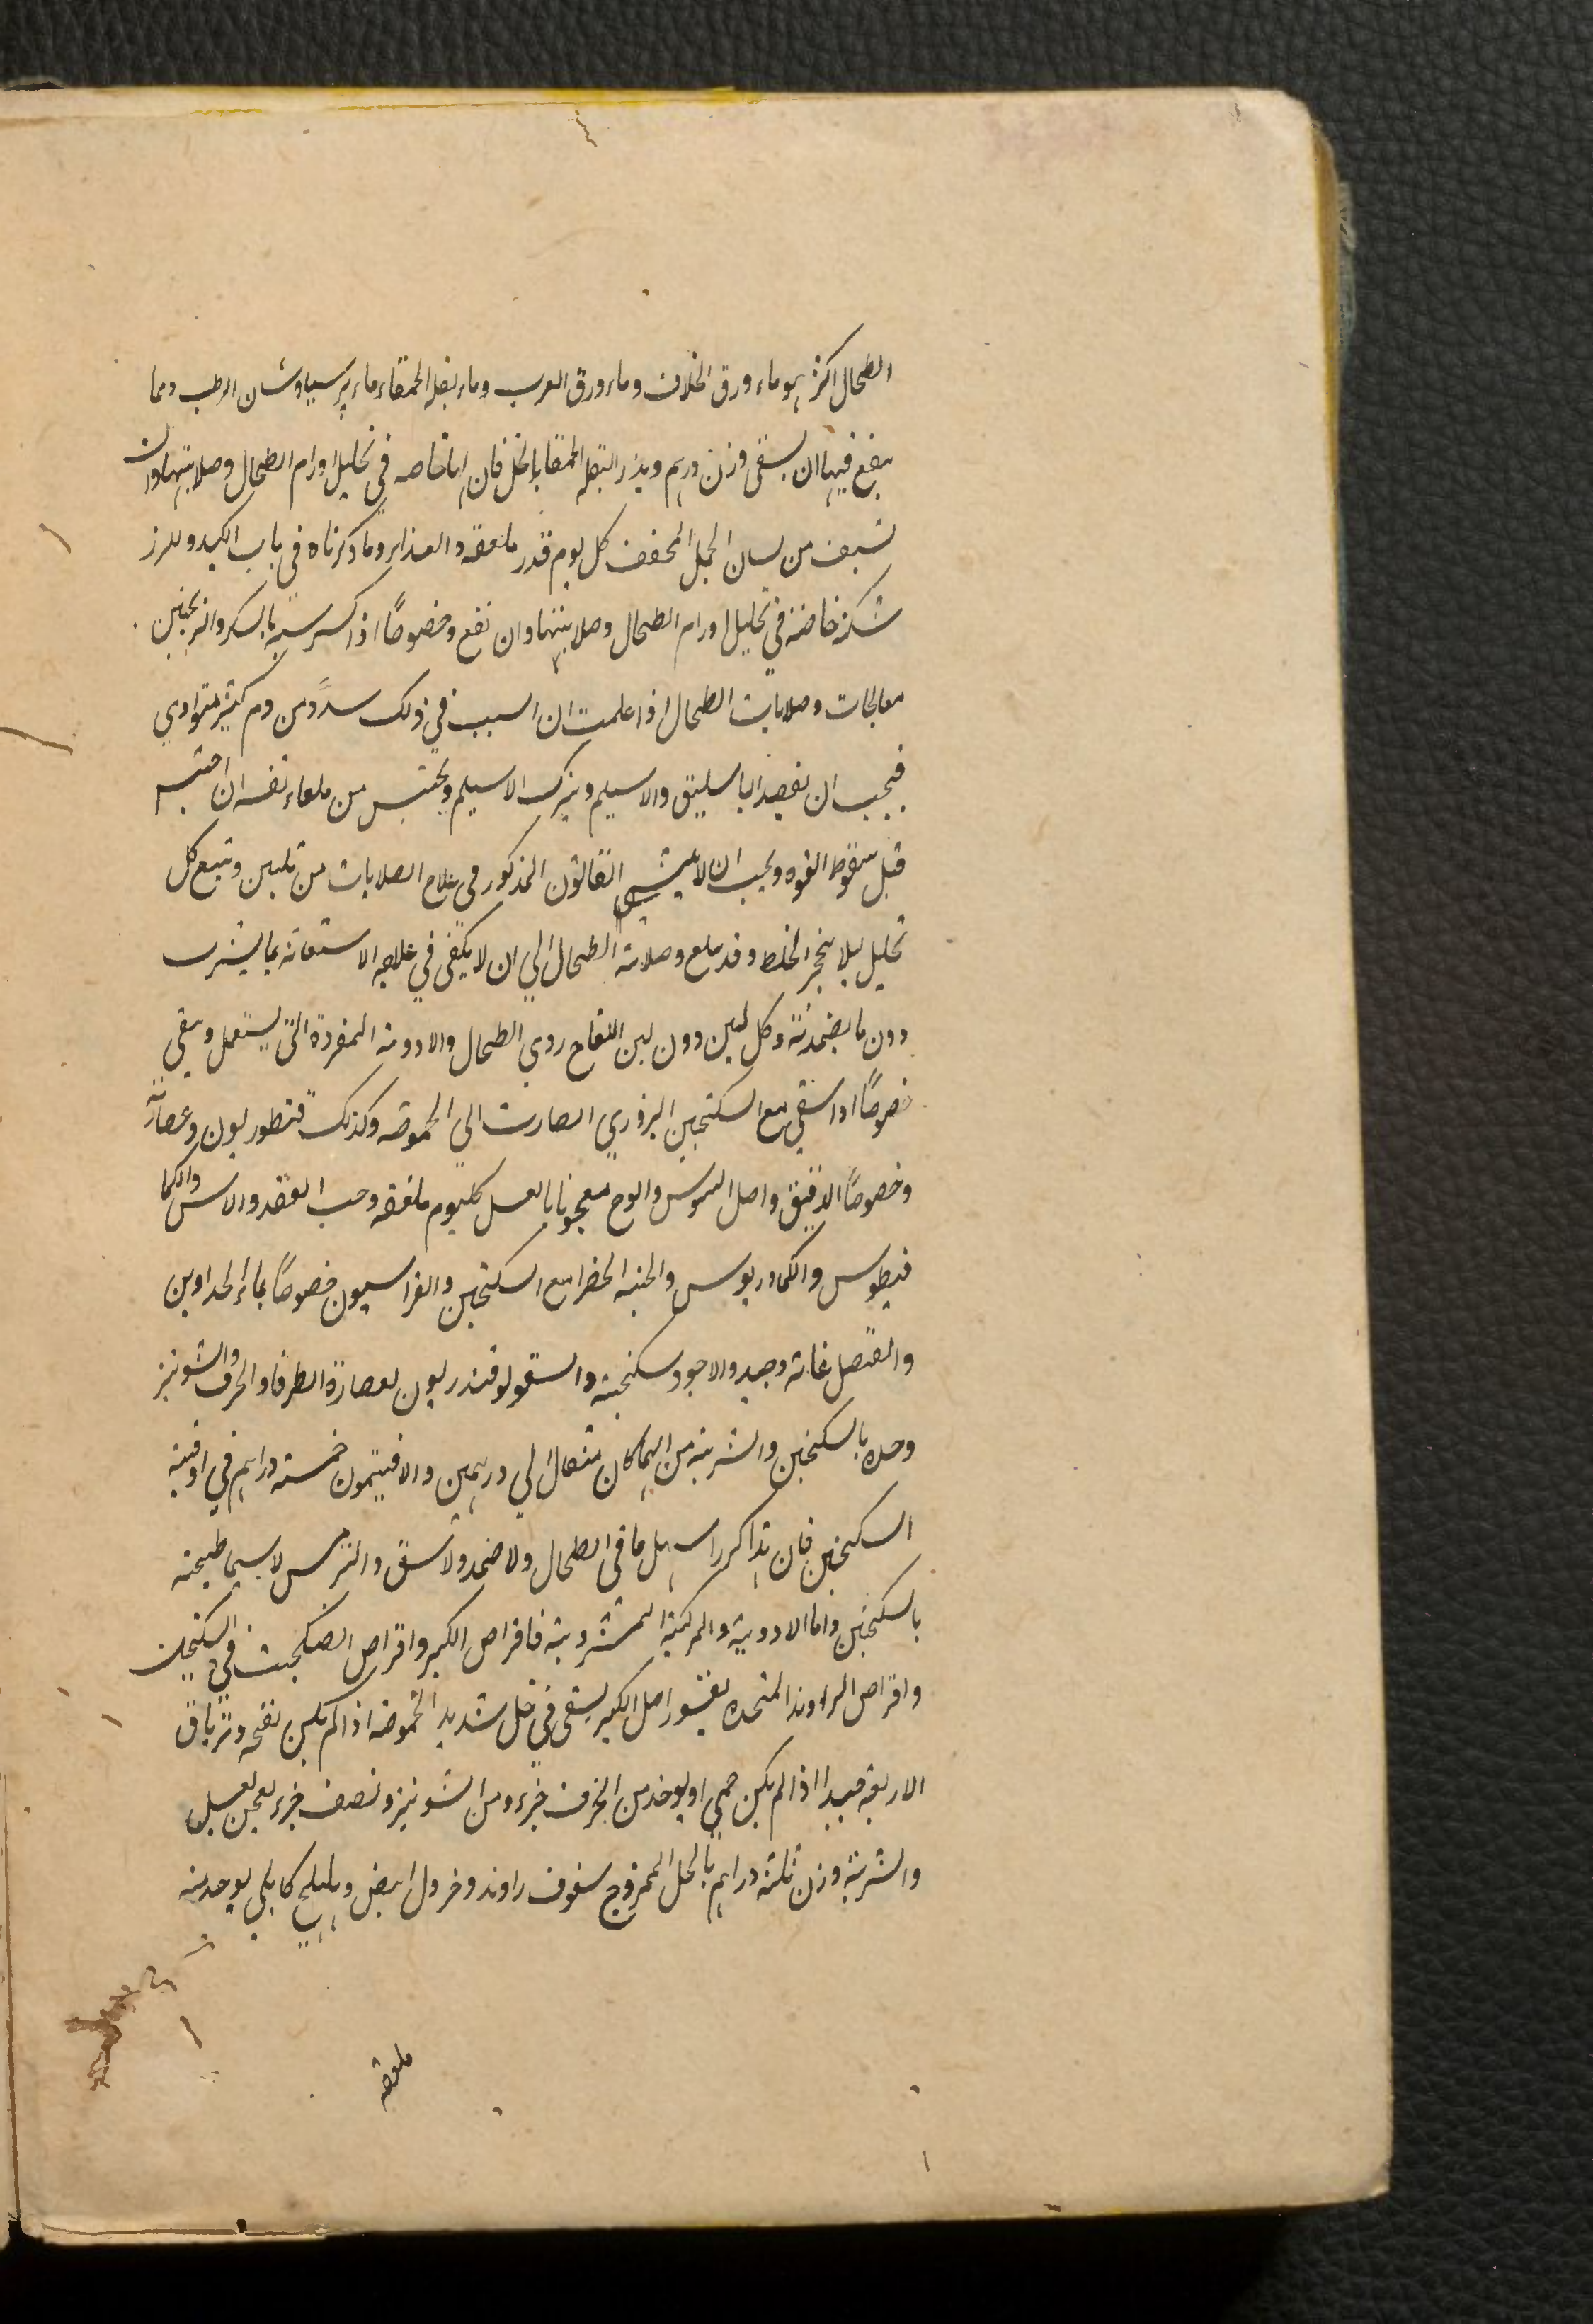 الطحال اكثر هو ماء ورق الخلاف وماء ورق الغرب وماء بقلة الحمقاء وماء پرسياوشان الرطب ومما
ينفع فيها ان يسقى وزن درهم وبذر البقلة الحمقا بالخل فان لها خاصه في تحليل اورام الطحال وصلابتها وان
تسف من لسان الحمل المجفف كل يوم قدر ملعقه والغذاء وما ذكرناه في باب الكبد وللرز
شك خاصة في تحليل اورام الطحال وصلابتها وان نفع وخصوصًا اذا كسر بالسكر والترنجبين
معالجات وصلابات الطحال اذا علمت ان السبب في ذلك سدًد من دم كثير متوادي
فيجب ان تفصد الباسليق والاسيلم ويترك الاسيلم ويحتبس من تلقاء نفسه ان احتبس
قبل سقوط القوه ويجب ان لا ينسى القانون المذكور في علاج الصلابات من تليين وتتبع كل
تحليل ليلا يتحجر الخلط وقد يبلغ وصلابة الطحال الي ان لا يكفى في علاجه الاستعانه بما يشرب
دون ما يضمد به وكل لبن دون لبن اللقاح ردي الطحال والادويه المفردة التى يستعمل ويسقي
خصوصًا اذا سقي مع السكنجبين البزوري الصارت الى الحموضه وكذلك قنطوريون وعصارته
وخصوصًا الدقيق واصل السوس والوج معجونا بالعسل كليوم ملعقه وحب الفقد والاس والكما
فيطوس والكمادريوس والحبة الخضرا مع السكنجبين والفراسيون خصوصًا بماء الحدادين
والعنصل غاية وجيد والاجود سكنجبينه والسقولوقندريون بعصارة الطرفا والحرف والشونيز
وحده بالسكنجبين والشربة من ايهما كان مثقال الي درهمين والافيتمون خمسة دراهم في اوقية
السكنجبين فان هذا كرر اسهل ما في الطحال ولا ضمد ولاسق والترمس لا سيما طبيخه
بالسكنجبين واما الادوية والمركبة المشروبة فاقراص الكبر واقراص الفنجكشت في السكنجبين
واقراص الراوند المتخذه بقشور اصل الكبر يسقى في خل شديد الحموضه اذا لم يكن نفخه وترياق
الاربعة جيدا اذا لم يكن حمي او يوخذ من الحرف جزء ومن الشونيز ونصف جزء يعجن بعسل
والشربة وزن ثلثة دراهم بالخل الممزوج سفوف راوند وخردل ابيض وهليلج كابلي يوخذ منه
ملعقه